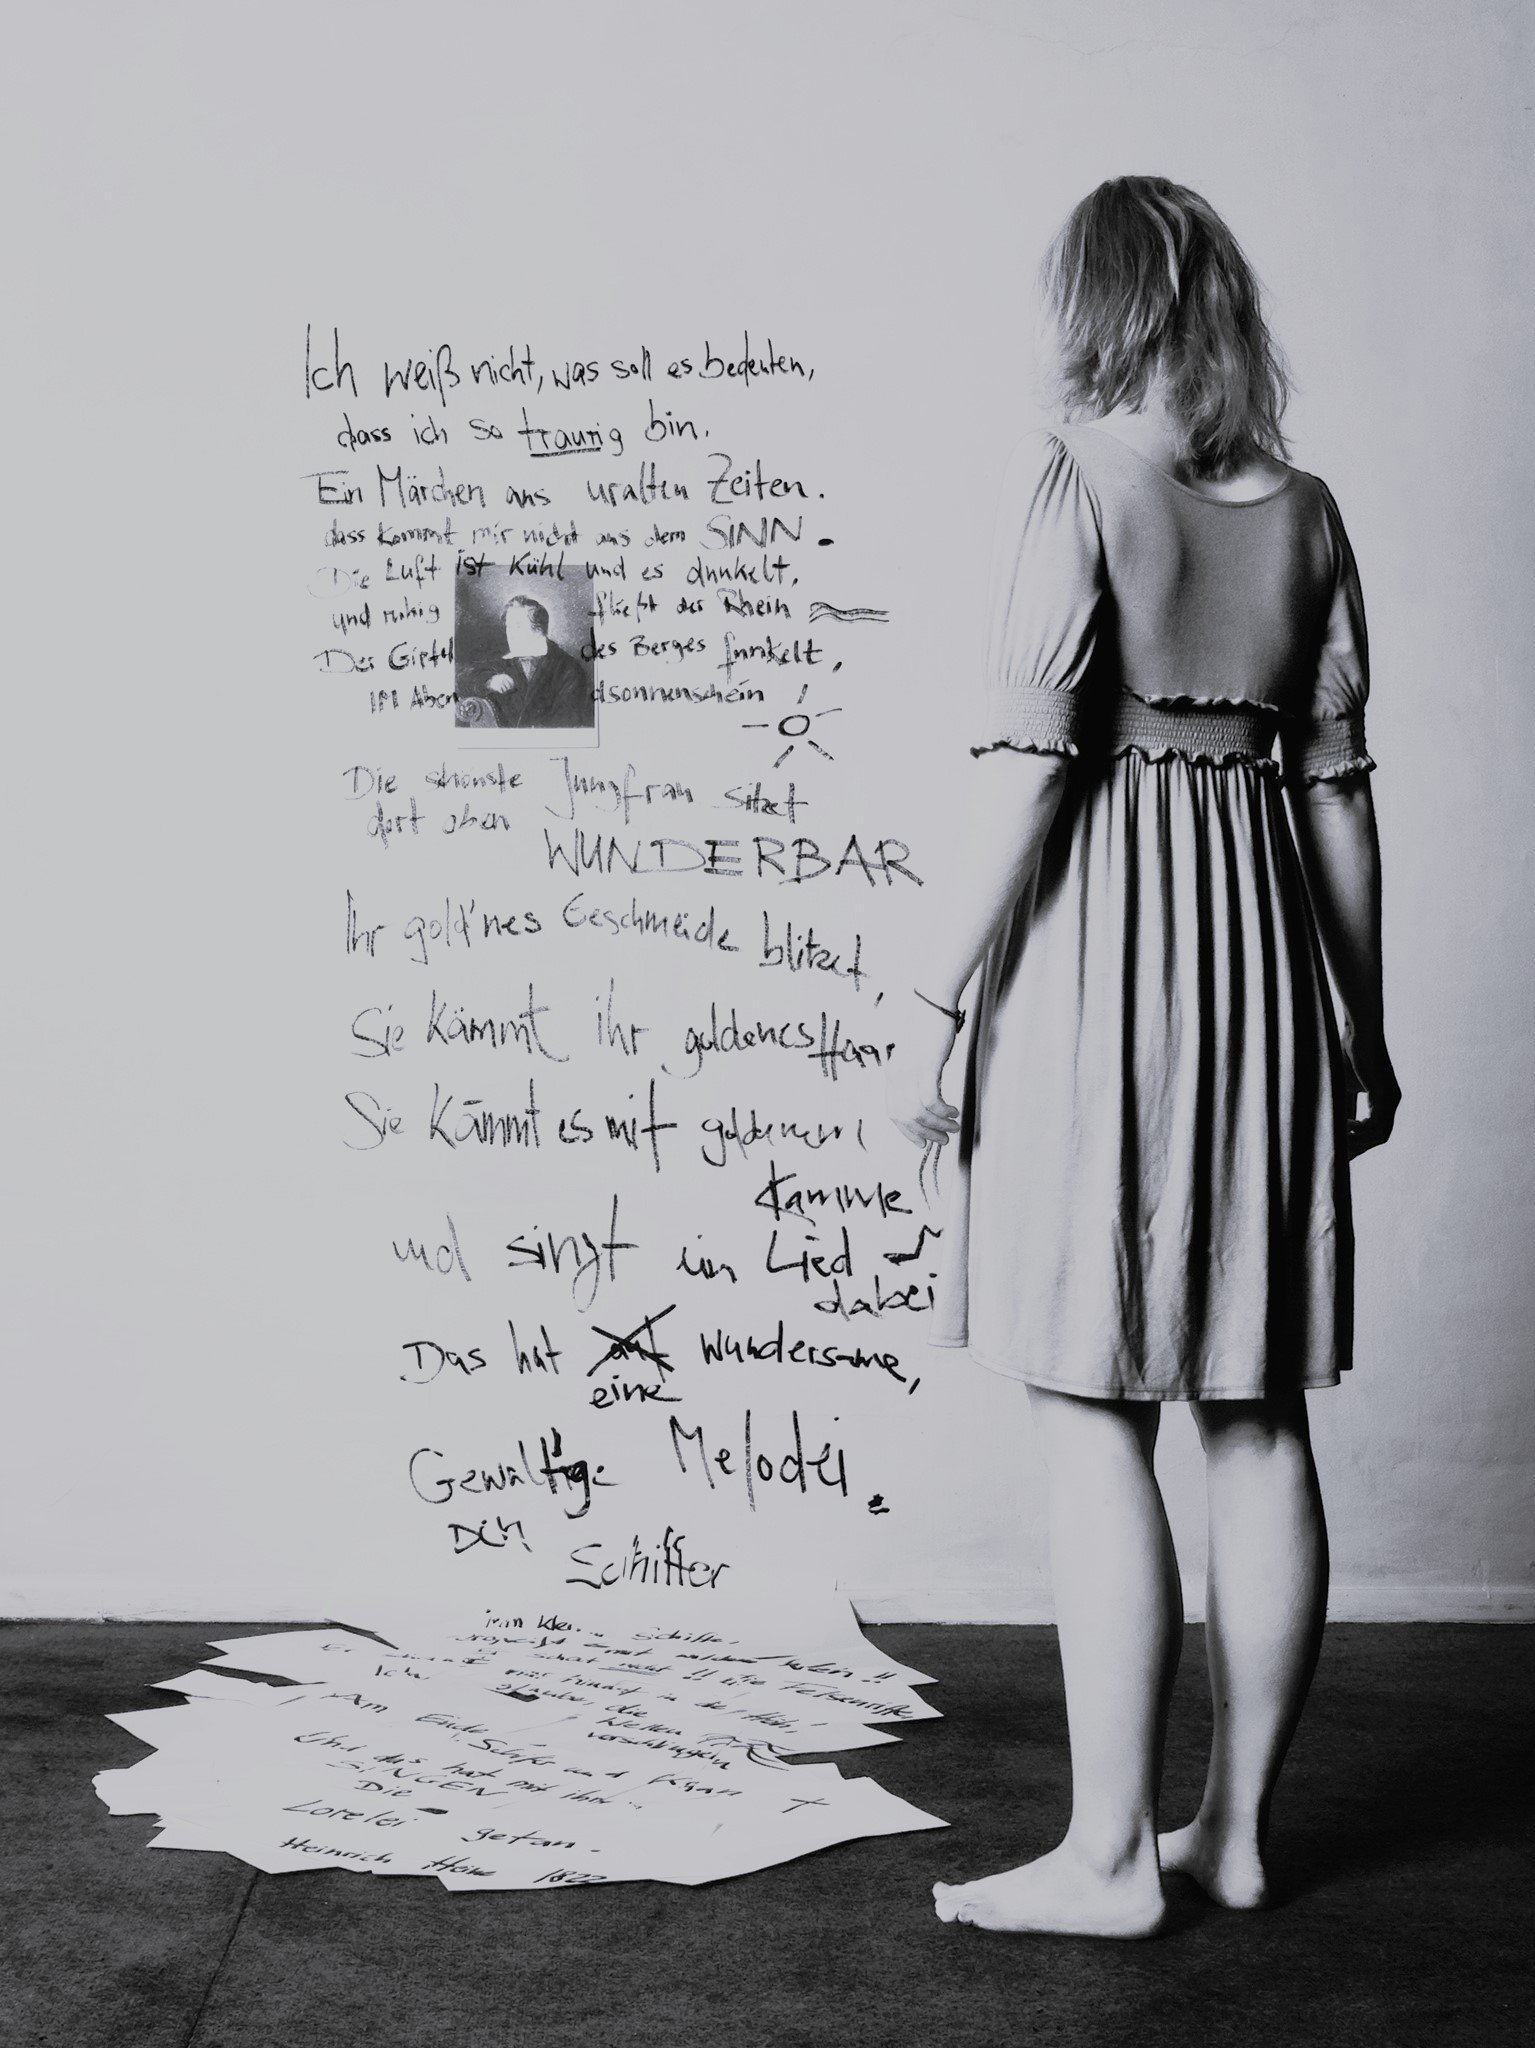 Ich weiß nicht, was soll es bedeuten,
dass ich so traurig bin.
Ein Märchen aus uralten Zeiten.
dass kommt mir nicht aus dem SINN.
Die Luft ist kühl und es dunkelt,
und ruhig fließt der Rhein
Der Gipfel des Berges funkelt,
im Abendsonnenschein
Die schönste Jungfrau sitzet
dort oben
WUNDERBAR
Ihr gold'nes Geschmeide blitzet,
Sie kämmt ihr goldenes Haar
Sie kämmt es mit goldenem
Kamme
und singt ein Lied
dabei
Das hat wundersame,
eine
Gewaltige Melodei.
Schiffer
Schiffe,
nicht!! die Felsenriffe,
in die Höh,
Ich glaube, die Wellen
verschlingen
Am Ende Schiffer und Kahn
Und das hat mit ihrem
SINGEN
Die
Lorelei getan.
Heinrich Heine 1822